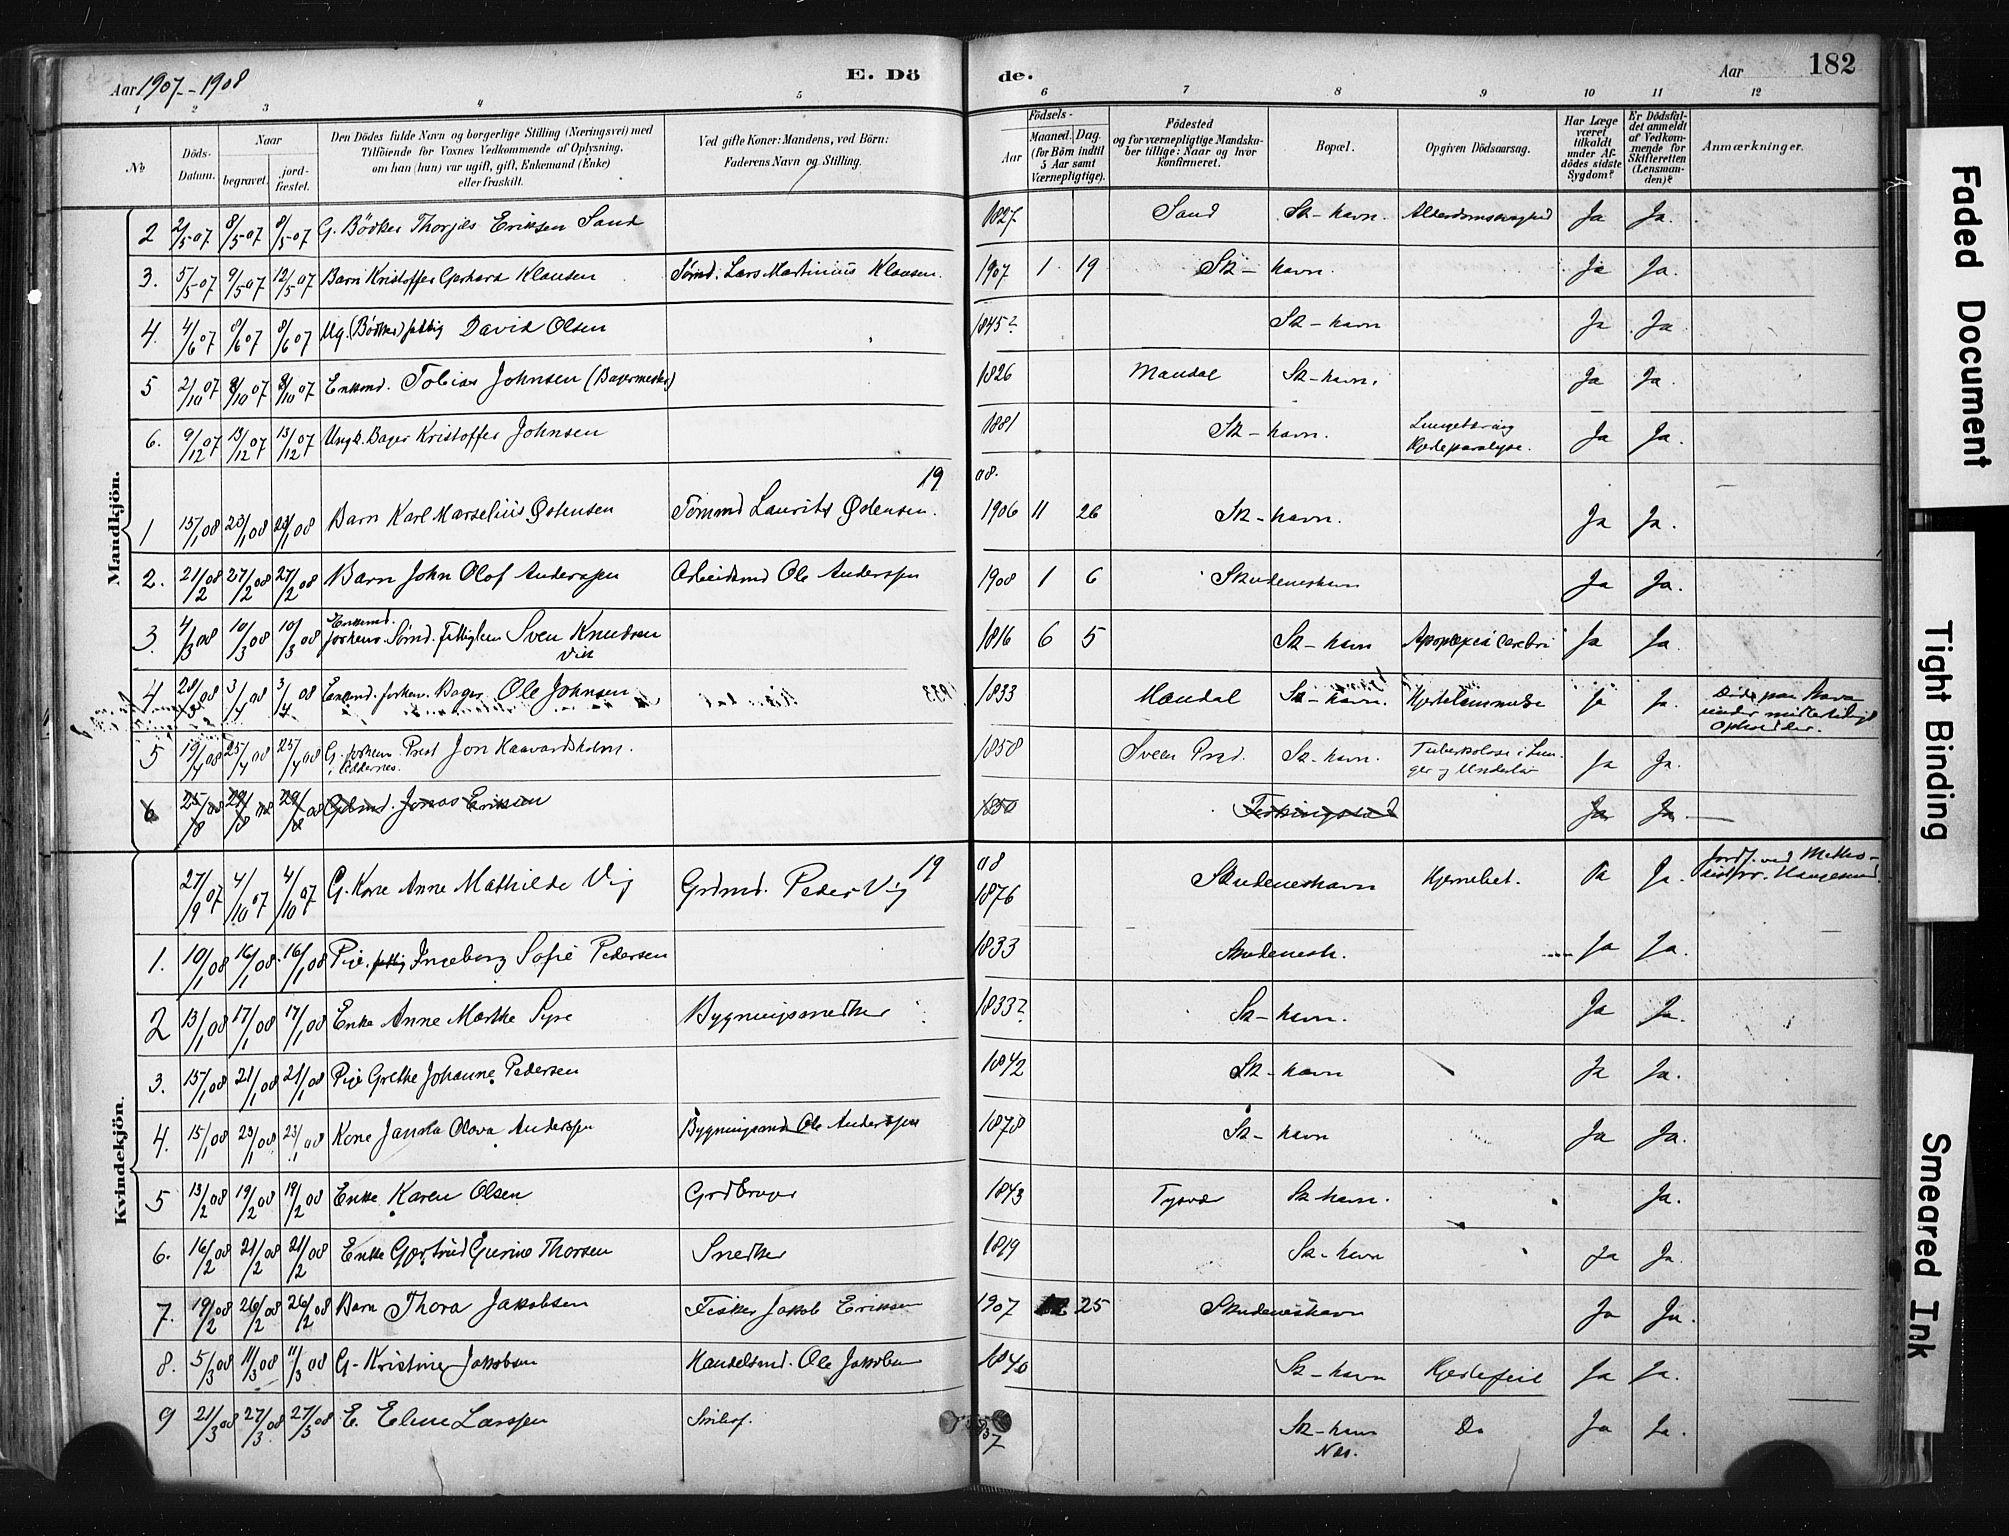 Aar 1907-1908
E. Dö
de.
Aar
182
1 2 3 4 5 6 7 8 9 10 11 12
No
Döds-Datum.
Naar
begravet.
jord-fæstet.
Den Dödes fulde Navn og borgerlige Stilling (Næringsvei) med
Tilföiende for Voxnes Vedkommende af Oplysning,
om han (hun) var ugift, gift, Enkemand (Enke)
eller fraskilt.
Ved gifte Koner: Mandens, ved Börn:
Faderens Navn og Stilling.
Födsels-
Aar
Maaned. Dag.
(for Börn indtil
5 Aar samt
Værnepligtige).
Födested
og for værnepligtige Mandska-
ber tillige: Naar og hvor
konfirmeret.
Bopæl.
Opgiven Dödsaarsag.
Har Læge
været
tilkaldt
under Af-
dödes sidste
Sygdom?
Er Dödsfal-
det anmeldt
af Vedkom-
mende for
Skifteretten
(Lensman-
den)?
Anmærkninger.
Mandkjön.
2 2/5 07 8/5 07 8/5 07 G. Bödker Thorjes Eriksen Sand 1827 Sand Sk-havn. Alderdomssvaghed Ja Ja.
3. 5/5 07 9/5 07 12/5 07 Barn Kristoffer Gerhard Klausen Sømd. Lars Martinius Klausen. 1907 1 19 Sk-havn. Ja Ja.
4. 4/6 07 8/6 07 8/6 07 Ug. (Bödker) fattig David Olsen 1845? Sk-havn Ja Ja
5 2/10 07 8/10 07 8/10 07 Enkemd. Tobias Johnsen (Bagermester) 1826 Mandal Sk-havn. Ja Ja.
6. 9/12 07 13/12 07 13/12 07 Ungk. Bager Kristoffer Johnsen 1881 Sk-havn. Lungetæring Hjerteparalyse. Ja Ja.
19 08.
1 15/1 08 23/1 08 23/1 08 Barn Karl Marselius Ostensen Tømmd Laurits Ostensen. 1906 11 26 Sk-havn. Ja Ja.
2. 21/2 08 27/2 08 27/2 08 Barn John Olof Anderssen Arbeidsmd Ole Anderssen 1908 1 6 Skudeneshavn Ja Ja.
3. 4/3 08 10/3 08 10/3 08 Enkemd. forhenv. Sømd. fattiglem Sven Knudsen Vik 1816 6 5 Sk-havn Apoplexia cerebri Ja Ja.
4 28/3 08 3/4 08 3/4 08 Enkemd. forhen. Bager Ole Johnsen 1833 Mandal Sk-havn. Hjertelammelse Ja Ja. Døde paa under midlertidigt Ophold der.
5 19/4 08 25/4 08 25/4 08 G. forhenv. Prest Jon Haavardsholm. i Oddernes. 1858 Sveen Prd. Sk-havn. Tuberkulose i Lunger og Underliv Ja Ja.
6 25/8 08 29/8 08 29/8 08 Gbmd. Jonas Eriksen 1850 Ferkingstad Ja Ja
Kvindekjön.
19 08
27/9 07 4/10 07 4/10 07 G. Kone Anne Mathilde Vig Grdmd. Peder Vig 1876 Skudeneshavn Hjernebet. Ja Ja. Jordf. ved Methodistpr. Haugesund.
1. 10/1 08 16/1 08 16/1 08 Pige fattig Ingeborg Sofie Pedersen 1833 Skudenesh. Ja Ja.
2 13/1 08 17/1 08 17/1 08 Enke Anne Marthe Syre Bygningssnedker 1833? Sk-havn. Ja Ja.
3. 15/1 08 21/1 08 21/1 08 Pige Grethe Johanne Pedersen 1842 Sk-havn Ja Ja.
4. 15/1 08 23/1 08 23/1 08 Kone Janda Olava Anderssen Bygningsmd Ole Anderssen 1878 Sk-havn Ja Ja.
5 13/2 08 19/2 08 19/2 08 Enke Karen Olsen Grdbruger 1843 Tysvær Sk-havn. Ja.
6. 16/2 08 21/2 08 21/2 08 Enke Gjertrud Gurine Thorsen Snedker 1819 Sk-havn Ja Ja.
7. 19/2 08 26/2 08 26/2 08 Barn Thora Jakobsen Fisker Jakob Eriksen 1907 12 25 Skudeneshavn Ja Ja.
8. 5/3 08 11/3 08 11/3 08 G. Kristine Jakobsen Handelsmd. Ole Jakobsen 1840 Sk-havn Hjertefeil Ja Ja.
9 21/3 08 27/3 08 27/3 08 E. Eline Larssen 37 Sk-havn Nes. Do Ja Ja.
Faded Document
Tight Binding
Smeared Ink